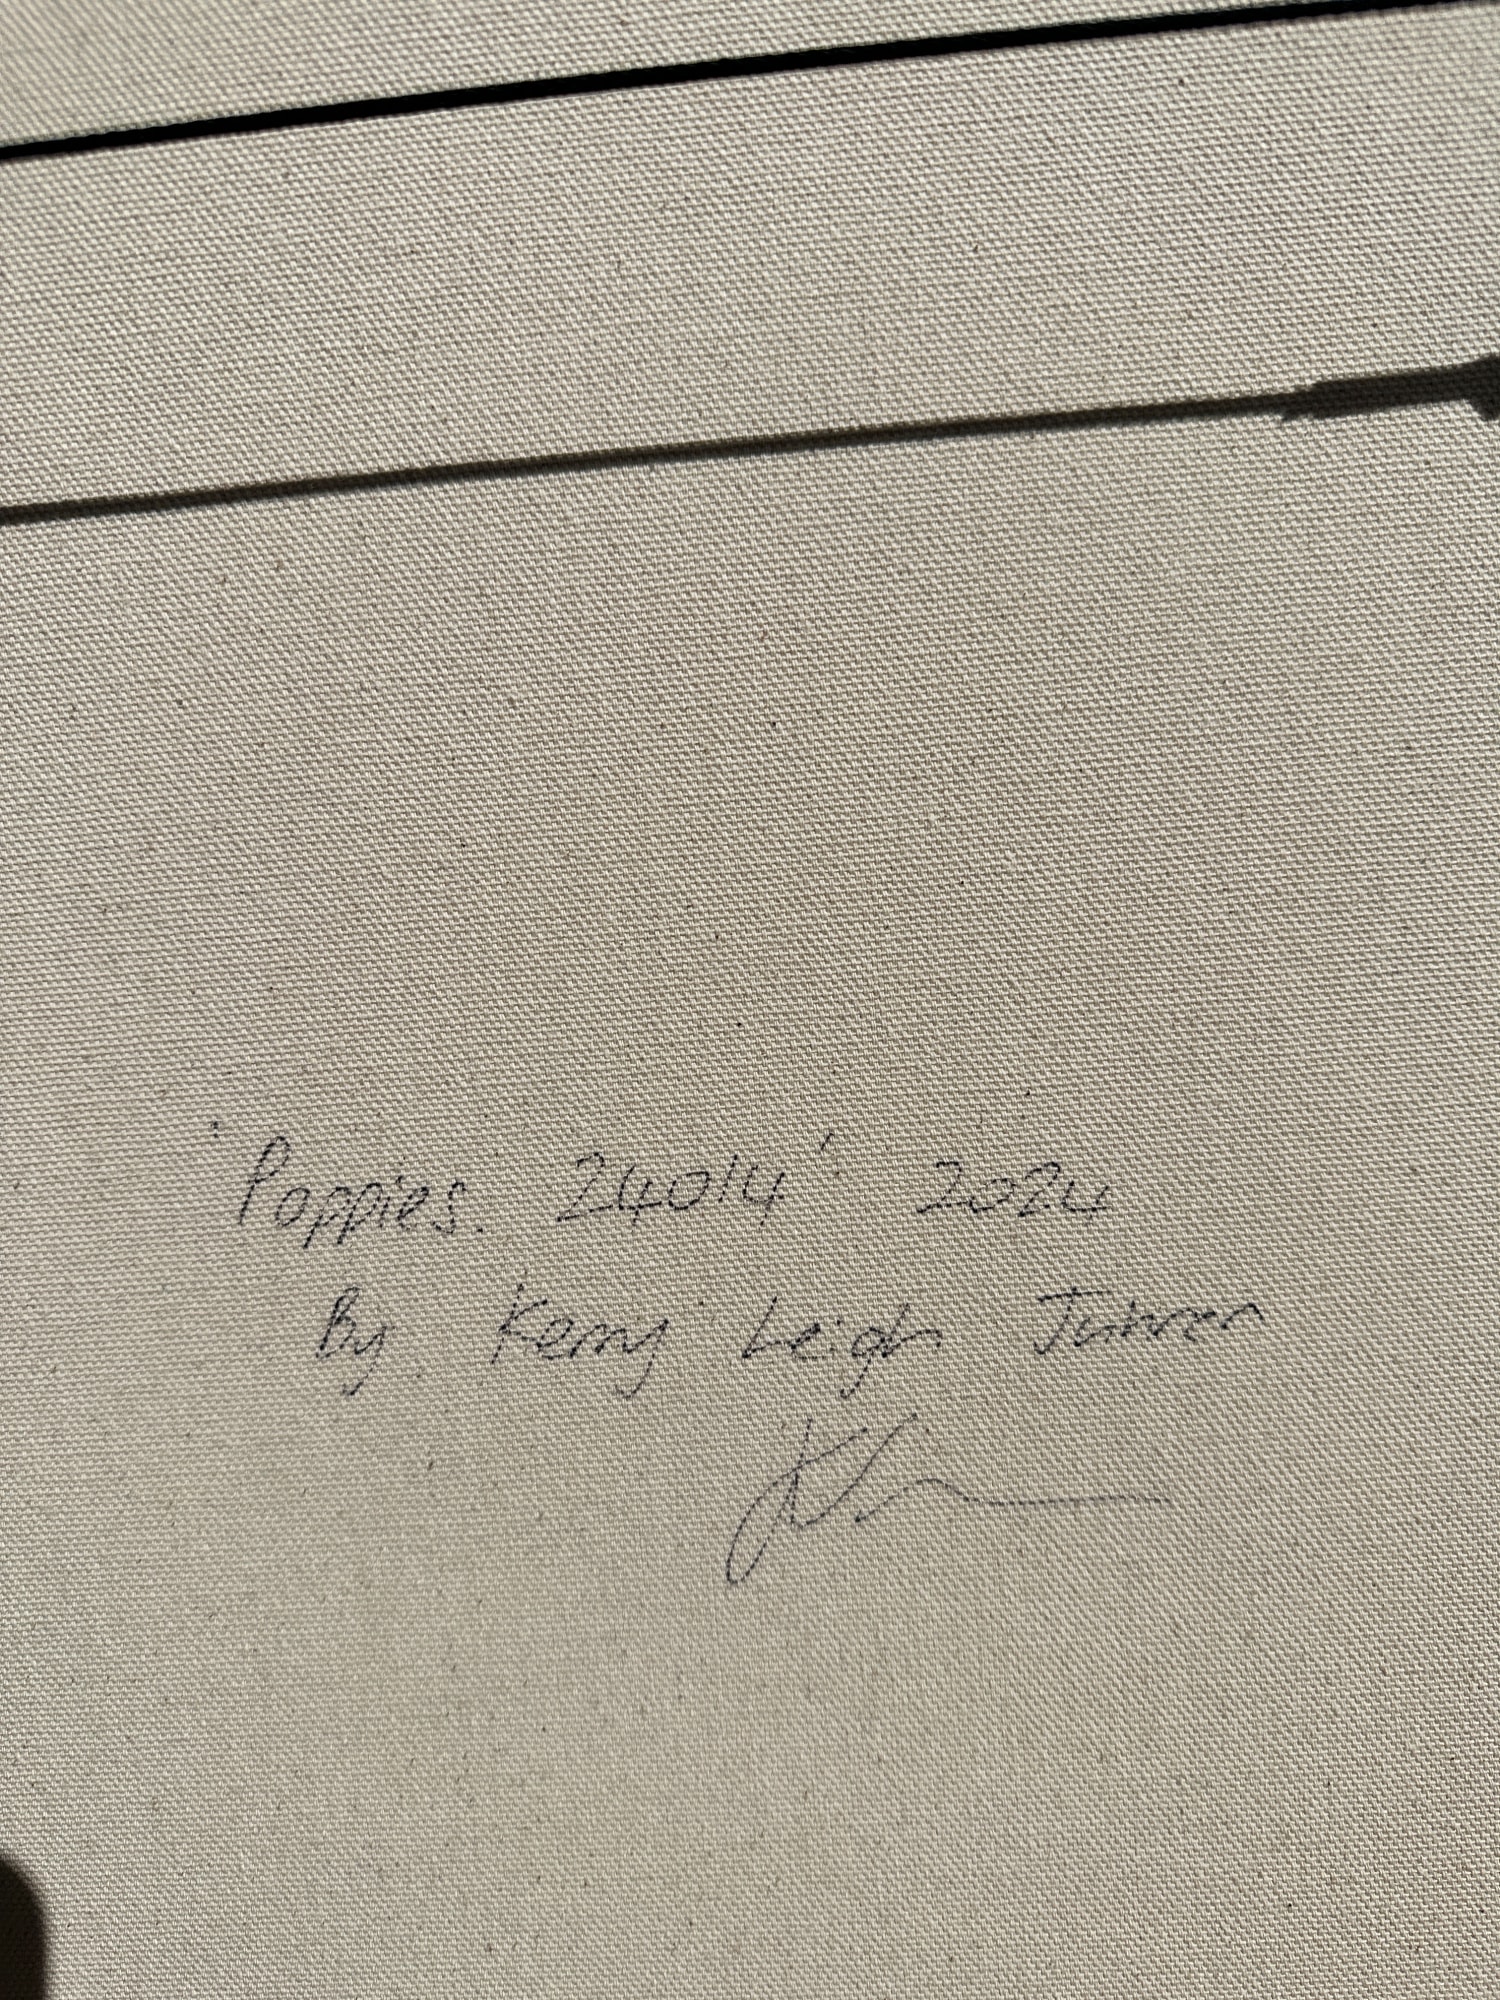 'Poppies. 24014' 2024
By Kerry Leigh